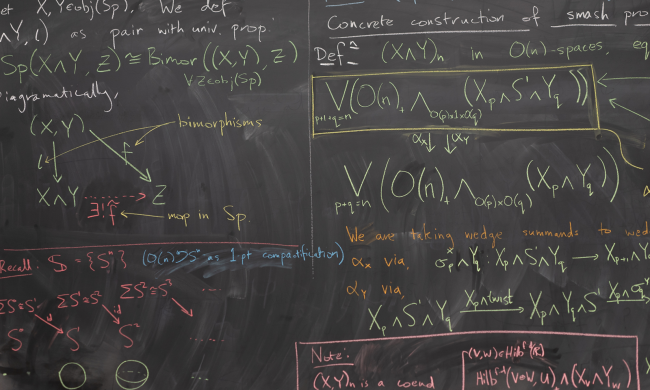 et X, Y∈obj(Sp). We def
∧Y, i) as pair with univ. prop:
Sp(X∧Y, Z) ≅ Bimor((X,Y), Z)
∀Z∈obj(Sp)
Diagramatically,
(X,Y)
bimorphisms
i
f
X∧Y
Z
∃! f̃
map in Sp
Recall: 𝕊 = {Sⁿ} (O(n)⊃Sⁿ as 1 pt compactification)
ΣS⁰≅S¹ ΣS¹≅S² ΣS²≅S³ ....
S⁰ S¹ S² ....
Concrete construction of smash pro
Defⁿ: (X∧Y)ₙ in O(n)-spaces, eq
⋁ (O(n)₊ ∧_{O(p)×1×O(q)} (X_p∧S¹∧Y_q))
p+1+q=n
α_X α_Y
⋁ (O(n)₊ ∧_{O(p)×O(q)} (X_p∧Y_q))
p+q=n
We are taking wedge summands to wed
α_X via, σ_p^X∧Y_q : X_p∧S¹∧Y_q → X_{p+1}∧Y
α_Y via,
X_p∧S¹∧Y_q X_p∧twist → X_p∧Y_q∧S¹ X_p∧σ^Y
Note:
(X,Y)ₙ is a coend